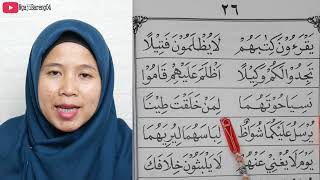 NgajiBareng04
٢٦
يَقْرَءُوْنَ كِتٰبَهُمْ لَا يُظْلَمُوْنَ فَتِيْلًا
تَجِدُوْا لَكُمْ وَكِيْلًا اَظْلَمَ عَلَيْهِمْ قَامُوْا
نَسِيَا حُوْتَهُمَا لِمَنْ خَلَقْتَ طِيْنًا
يُرْسَلُ عَلَيْكُمَا شُوَاظٌ لِبَاسَهُمَا لِيُرِيَهُمَا
يَوْمَ لَا يُغْنِيْ عَنْهُمْ لَا يَلْبَثُوْنَ خِلَافَكَ